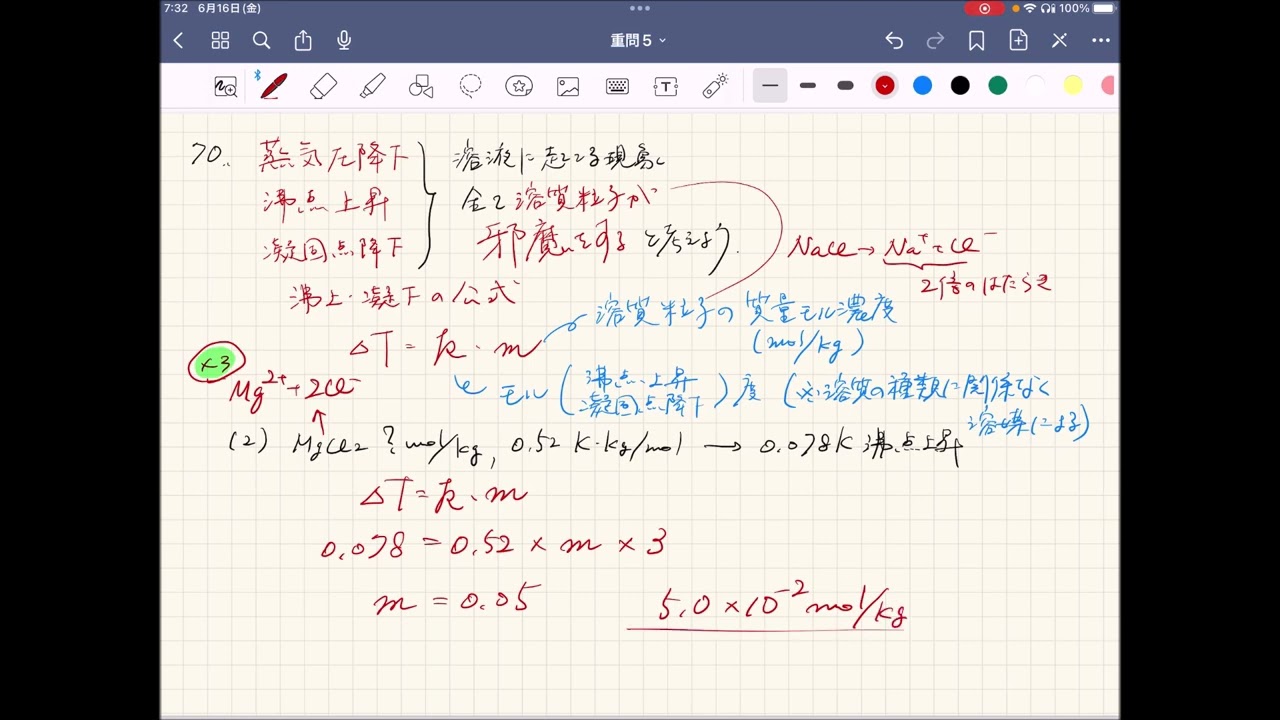 7:32 6月16日(金)
100%
重問5
70. 蒸気圧降下
沸点上昇
凝固点降下
溶液に起こる現象
全て溶質粒子が
邪魔をする と考えよう.
NaCl→Na⁺とCl⁻
2倍のはたらき
沸上・凝下の公式
ΔT=k・m
溶質粒子の質量モル濃度
(mol/kg)
モル(沸点上昇
凝固点降下)度 (※溶質の種類に関係なく
溶媒による)
×3
Mg²⁺+2Cl⁻
(2) MgCl₂ ? mol/kg, 0.52 K・kg/mol → 0.078K 沸点上昇
ΔT=k・m
0.078=0.52×m×3
m=0.05
5.0×10⁻² mol/kg